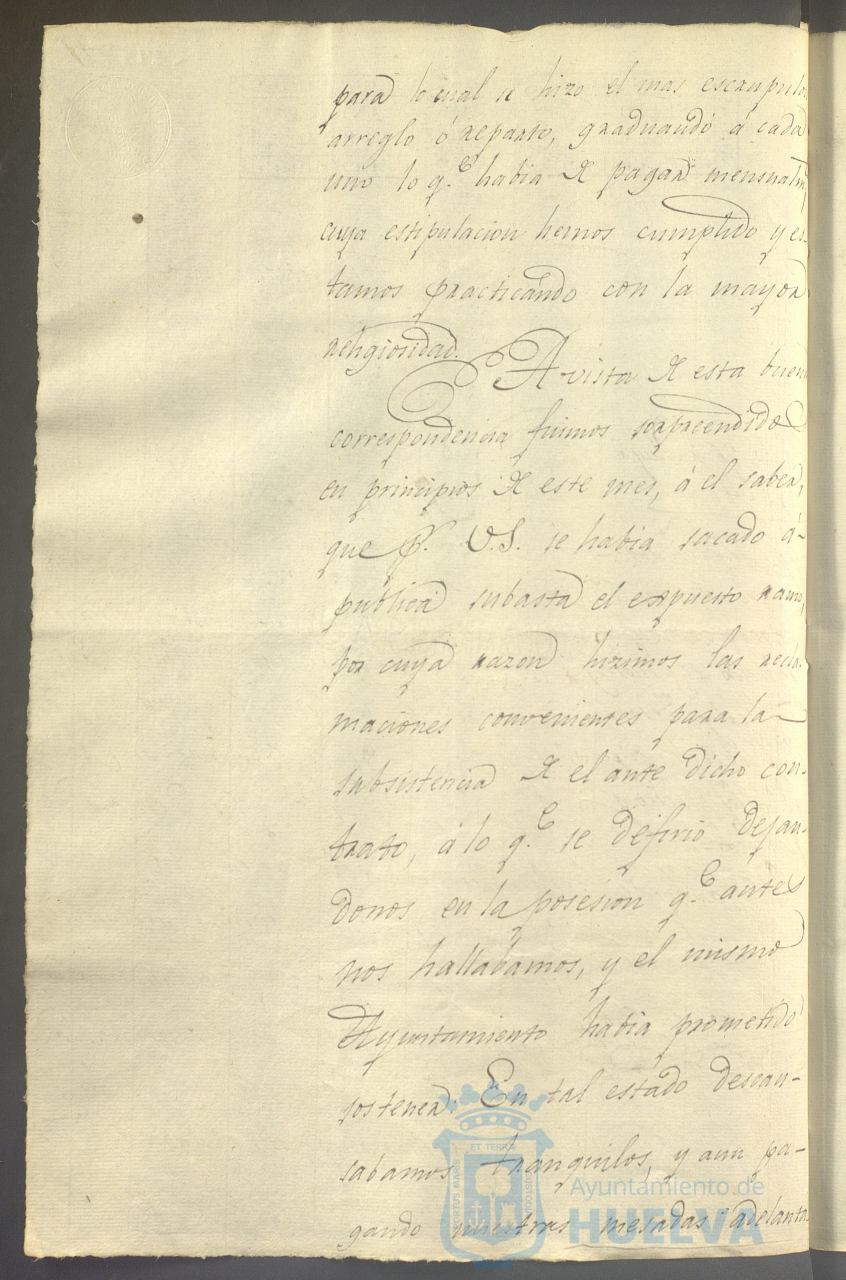 para lo cual se hizo el mas escrupulo
arreglo ó reparto, graduando á cada
uno lo q.e habia de pagar mensualm
cuya estipulacion hemos cumplido y es-
tamos practicando con la mayor
religiosidad.
A vista de esta buen
correspondencia fuimos sorprendidos
en principios de este mes, á el saber,
que p.r V.S. se habia sacado á
publica subasta el expuesto ramo,
por cuya razon hizimos las recla-
maciones convenientes para la
subsistencia de el ante dicho con-
trato, á lo q.e se defirio dejan-
donos en la posesion q.e antes
nos hallabamos, y el mismo
Ayuntamiento habia prometido
sostener. En tal estado descan-
sabamos tranquilos, y aun pa-
gando nuestras mesadas adelanta
ET TERRAE
PORTUS MARIS
CUSTODIA
Ayuntamiento de
HUELVA